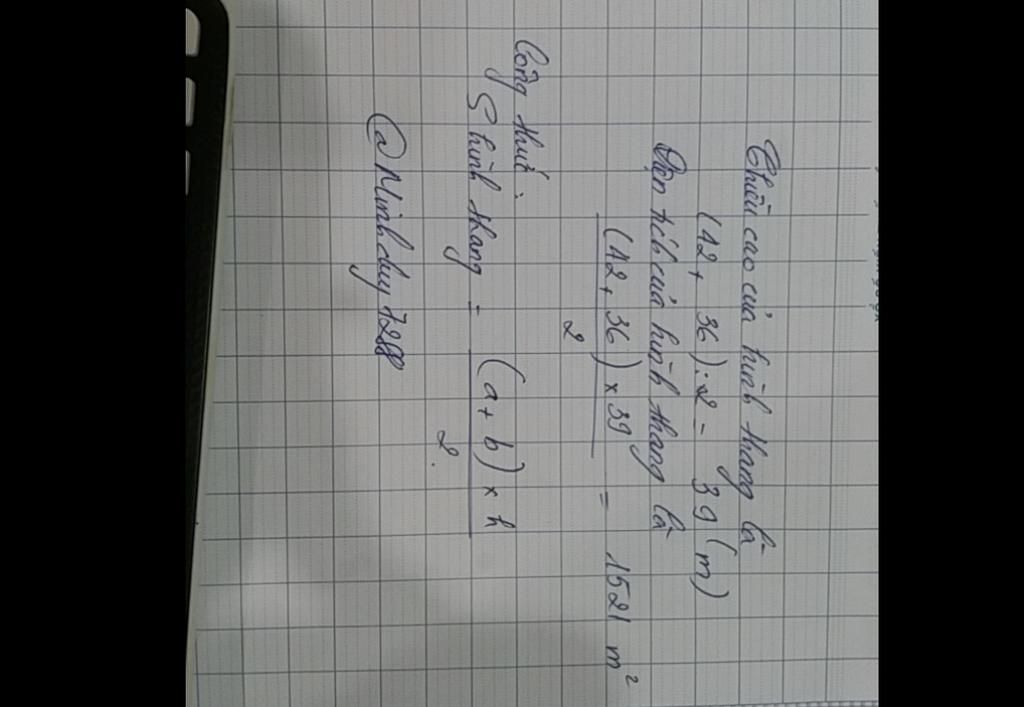 Chiều cao của hình thang là
(42 + 36) : 2 = 39 (m)
Diện tích của hình thang là
(42 + 36) × 39
2
= 1521 m²
Công thức :
S hình thang = (a + b) × h
2.